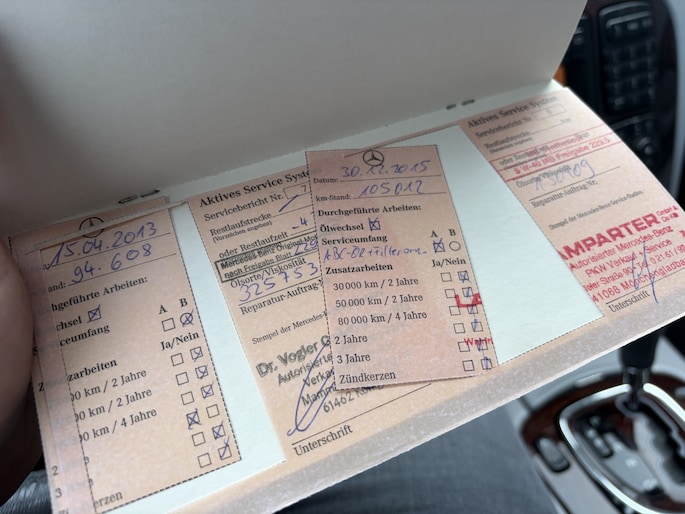 15.04.2013
and: 94.608
hgeführte Arbeiten:
chsel
iceumfang A B
zarbeiten Ja/Nein
00 km / 2 Jahre
00 km / 2 Jahre
00 km / 4 Jahre
2
3
erzen
Aktives Service Syst
Servicebericht Nr. 7
Restlaufstrecke
(Vorzeichen angeben)
oder Restlaufzeit -4
Mercedes Benz Original-M
nach Freigabe Blatt
Ölsorte/Viskosität
325753
Reparatur-Auftrag-N
Stempel der Mercedes-
Dr. Vogler G
Autorisierte
Verka
61462 K
Unterschrift
Datum: 30.12.2015
km-Stand: 105012
Durchgeführte Arbeiten:
Ölwechsel
Serviceumfang A B
Zusatzarbeiten Ja/Nein
30 000 km / 2 Jahre
50 000 km / 2 Jahre
80 000 km / 4 Jahre
2 Jahre
3 Jahre
Zündkerzen
Aktives Service System
Servicebericht Nr. 8
Restlaufstrecke
(Vorzeichen angeben)
MB Freigabe 229.5
Reparatur-Auftrag Nr.
Stempel der Mercedes-Benz Service-Station
AMPARTER GmbH
Autorisierter Mercedes-Benz
PKW Verkauf + Service
41068 Mönchengladbach
Unterschrift